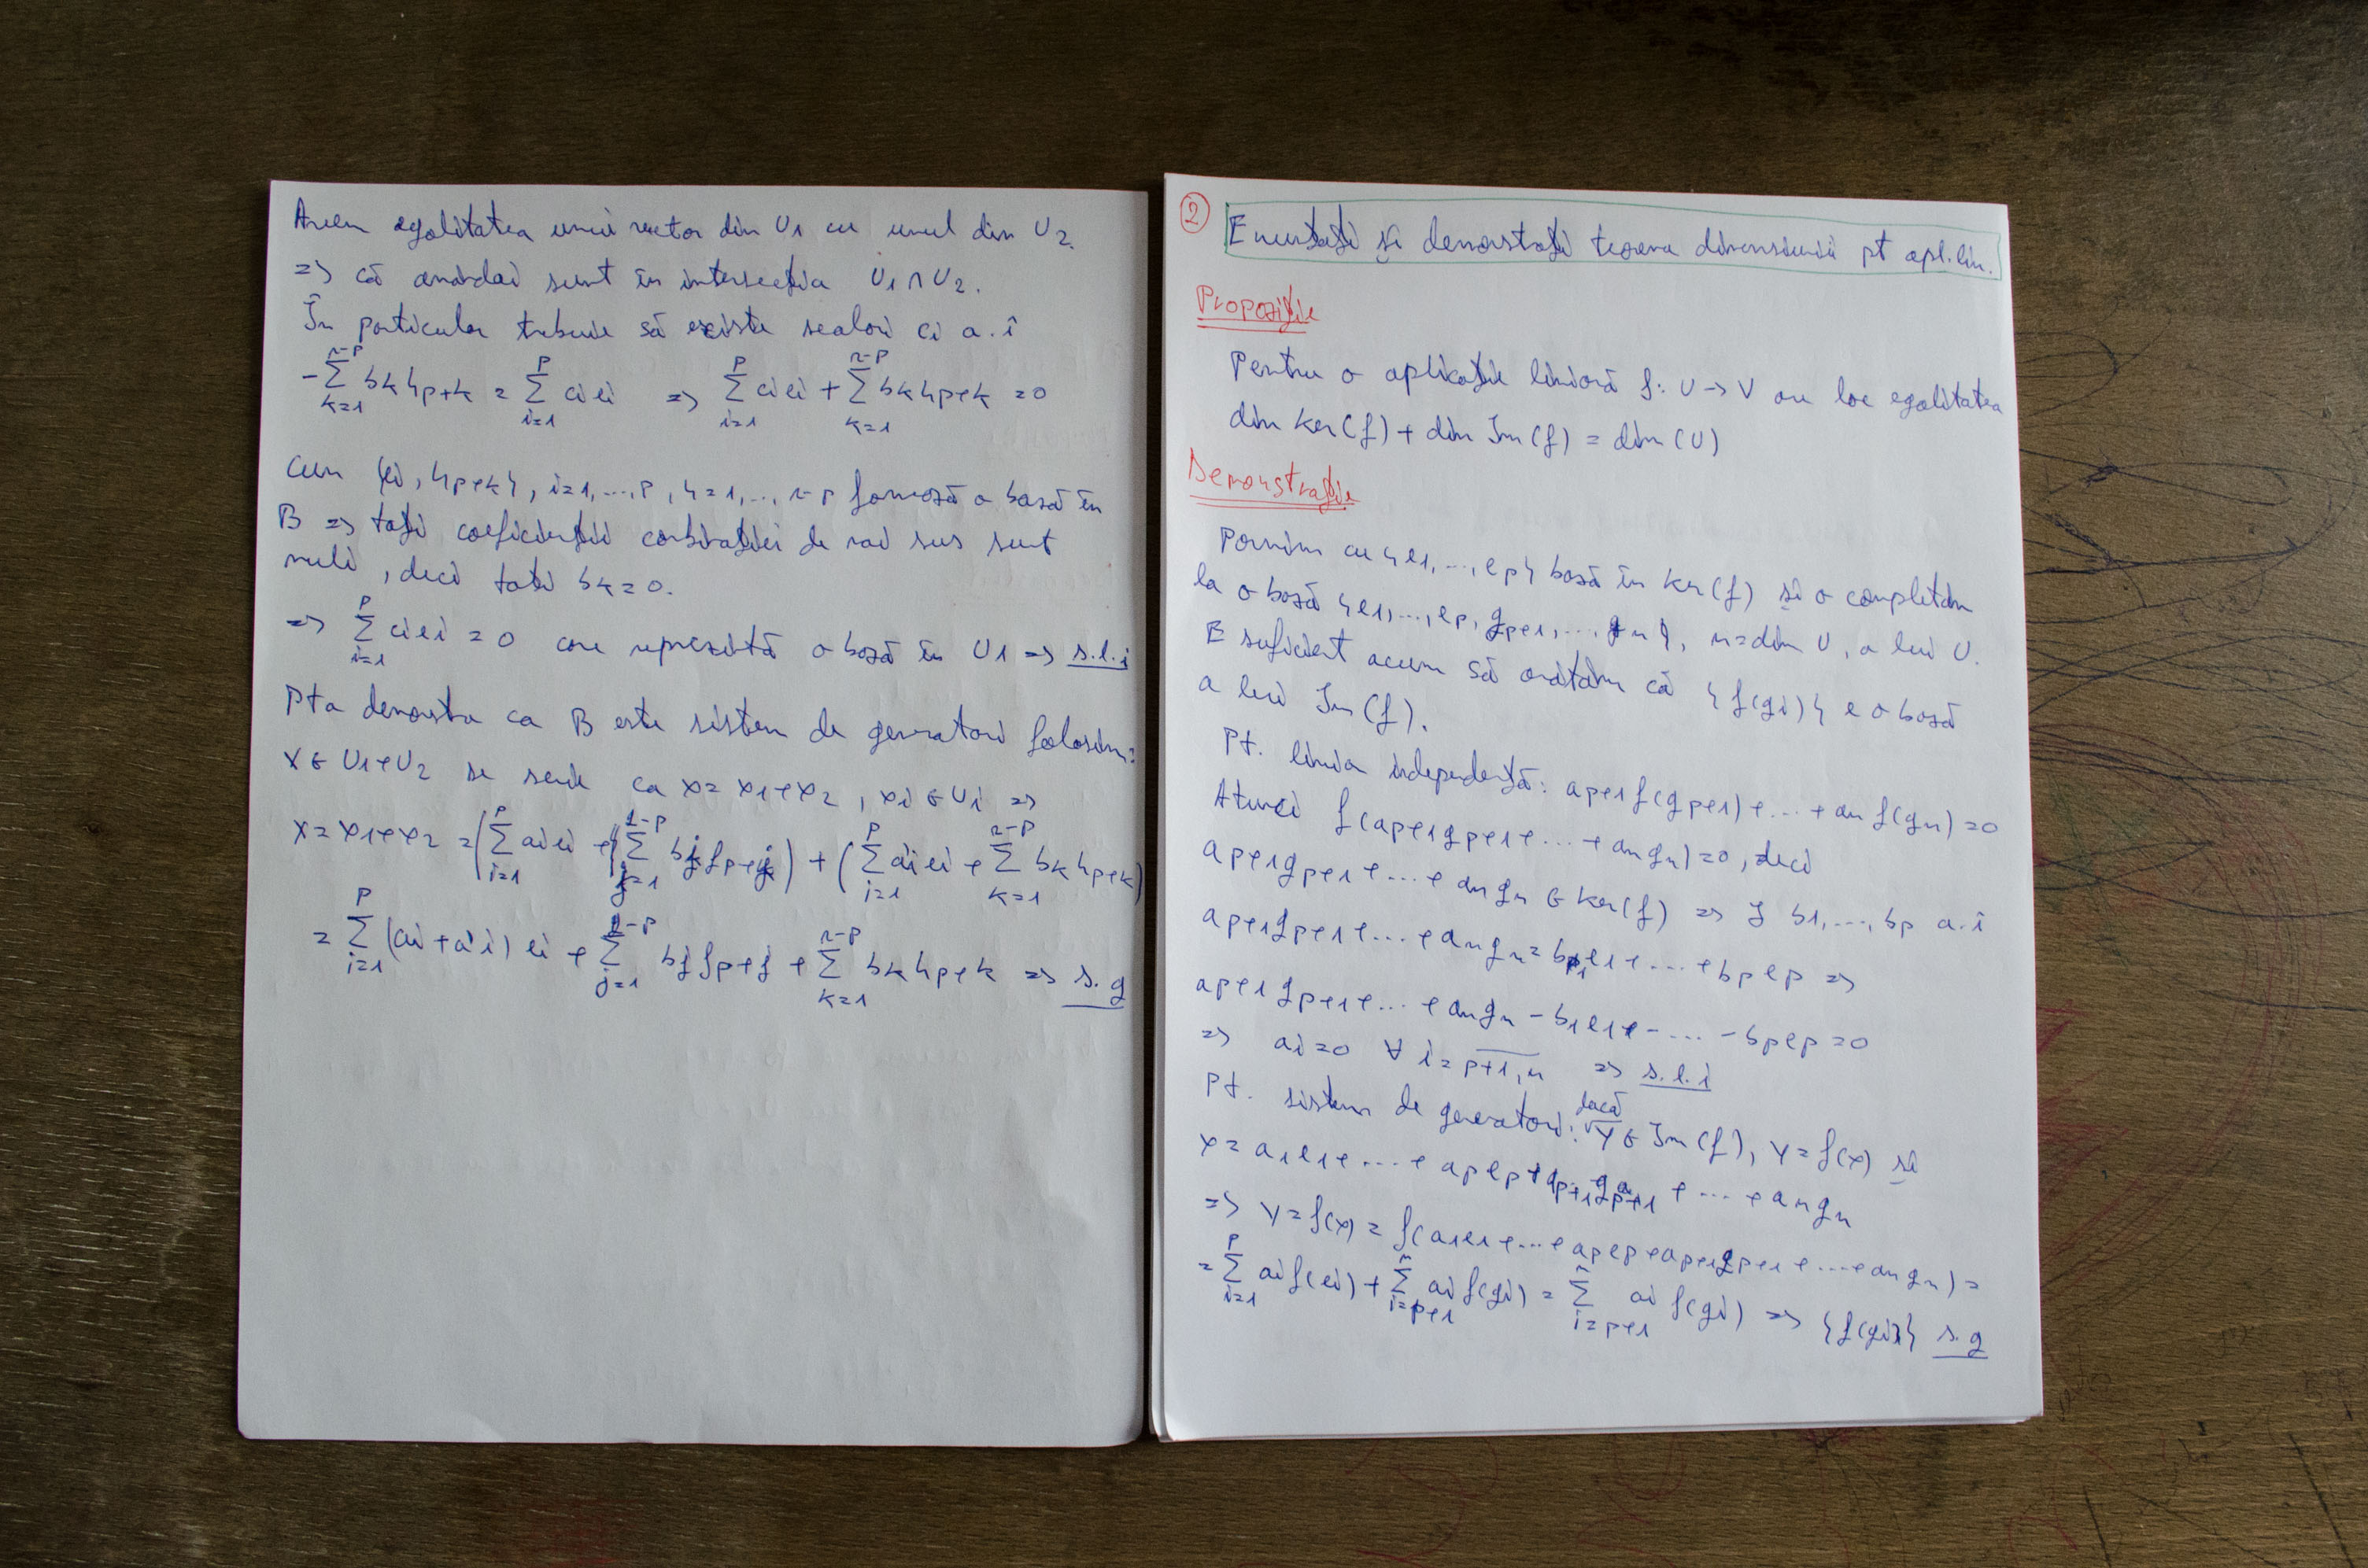 Avem egalitatea unui vector din U1 cu unul din U2.
=> că amândoi sunt în intersecția U1 ∩ U2.
În particular trebuie să existe scalari ci a.î
-∑_{k=1}^{r-p} bk hp+k = ∑_{i=1}^{p} ci ei => ∑_{i=1}^{p} ci ei + ∑_{k=1}^{r-p} bk hp+k = 0
Cum {ei, hp+k}, i=1,...,p, k=1,...,r-p formează o bază în
B => toți coeficienții combinației de mai sus sunt
nuli, deci toți bk=0.
=> ∑_{i=1}^{p} ci ei = 0 care reprezintă o bază în U1 => s.l.i
Pt a demonstra ca B este sistem de generatori folosim:
x ∈ U1+U2 se scrie ca x = x1+x2, xi ∈ Ui =>
x = x1+x2 = (∑_{i=1}^{p} ai ei + ∑_{j=1}^{q-p} bj fp+j) + (∑_{i=1}^{p} a'i ei + ∑_{k=1}^{r-p} bk hp+k)
= ∑_{i=1}^{p} (ai + a'i) ei + ∑_{j=1}^{q-p} bj fp+j + ∑_{k=1}^{r-p} bk hp+k => s.g
② Enunțați și demonstrați teorema dimensiunii pt apl.lin.
Propoziție
Pentru o aplicație liniară f: U -> V are loc egalitatea
dim Ker(f) + dim Im(f) = dim(U)
Demonstrație
Pornim cu {e1,...,ep} bază în Ker(f) și o completăm
la o bază {e1,...,ep, gp+1,...,gn}, n=dim U, a lui U.
E suficient acum să arătăm că {f(gi)} e o bază
a lui Im(f).
Pt. liniar independență: ap+1 f(gp+1) + ... + an f(gn) = 0
Atunci f(ap+1 gp+1 + ... + an gn) = 0, deci
ap+1 gp+1 + ... + an gn ∈ Ker(f) => ∃ b1,...,bp a.î
ap+1 gp+1 + ... + an gn = b1 e1 + ... + bp ep =>
ap+1 gp+1 + ... + an gn - b1 e1 - ... - bp ep = 0
=> ai=0 ∀ i=p+1,n => s.l.i
Pt. sistem de generatori: dacă y ∈ Im(f), y = f(x) și
x = a1 e1 + ... + ap ep + ap+1 gp+1 + ... + an gn
=> y = f(x) = f(a1 e1 + ... + ap ep + ap+1 gp+1 + ... + an gn) =
= ∑_{i=1}^{p} ai f(ei) + ∑_{i=p+1}^{n} ai f(gi) = ∑_{i=p+1}^{n} ai f(gi) => {f(gi)} s.g